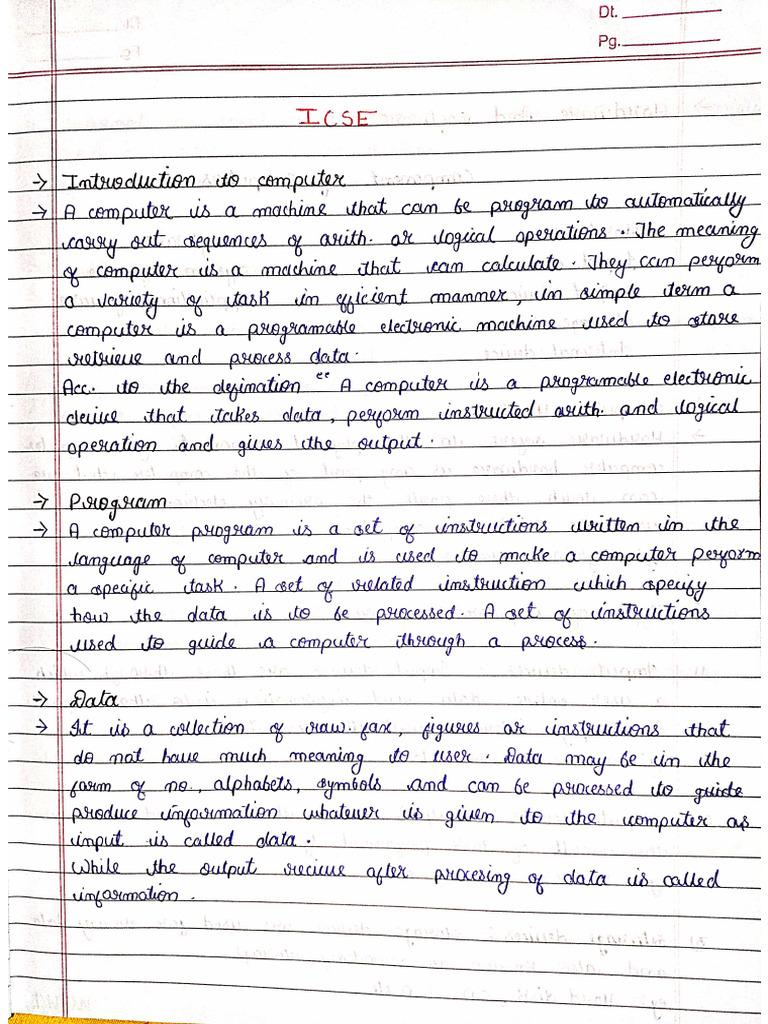 Dt.
Pg.
ICSE
→ Introduction to computer
→ A computer is a machine that can be program to automatically
carry out sequences of arith. or logical operations. The meaning
of computer is a machine that can calculate. They can perform
a variety of task in efficient manner, in simple term a
computer is a programable electronic machine used to store
retrieve and process data.
Acc. to the defination " A computer is a programable electronic
device that takes data, perform instructed arith. and logical
operation and gives the output.
→ Program
→ A computer program is a set of instructions written in the
language of computer and is used to make a computer perform
a specific task. A set of related instruction which specify
how the data is to be processed. A set of instructions
used to guide a computer through a process.
→ Data
→ It is a collection of raw fax, figures or instructions that
do not have much meaning to user. Data may be in the
form of no., alphabets, symbols and can be processed to guide
produce information whatever is given to the computer as
input is called data.
While the output recieve after procesing of data is called
information.